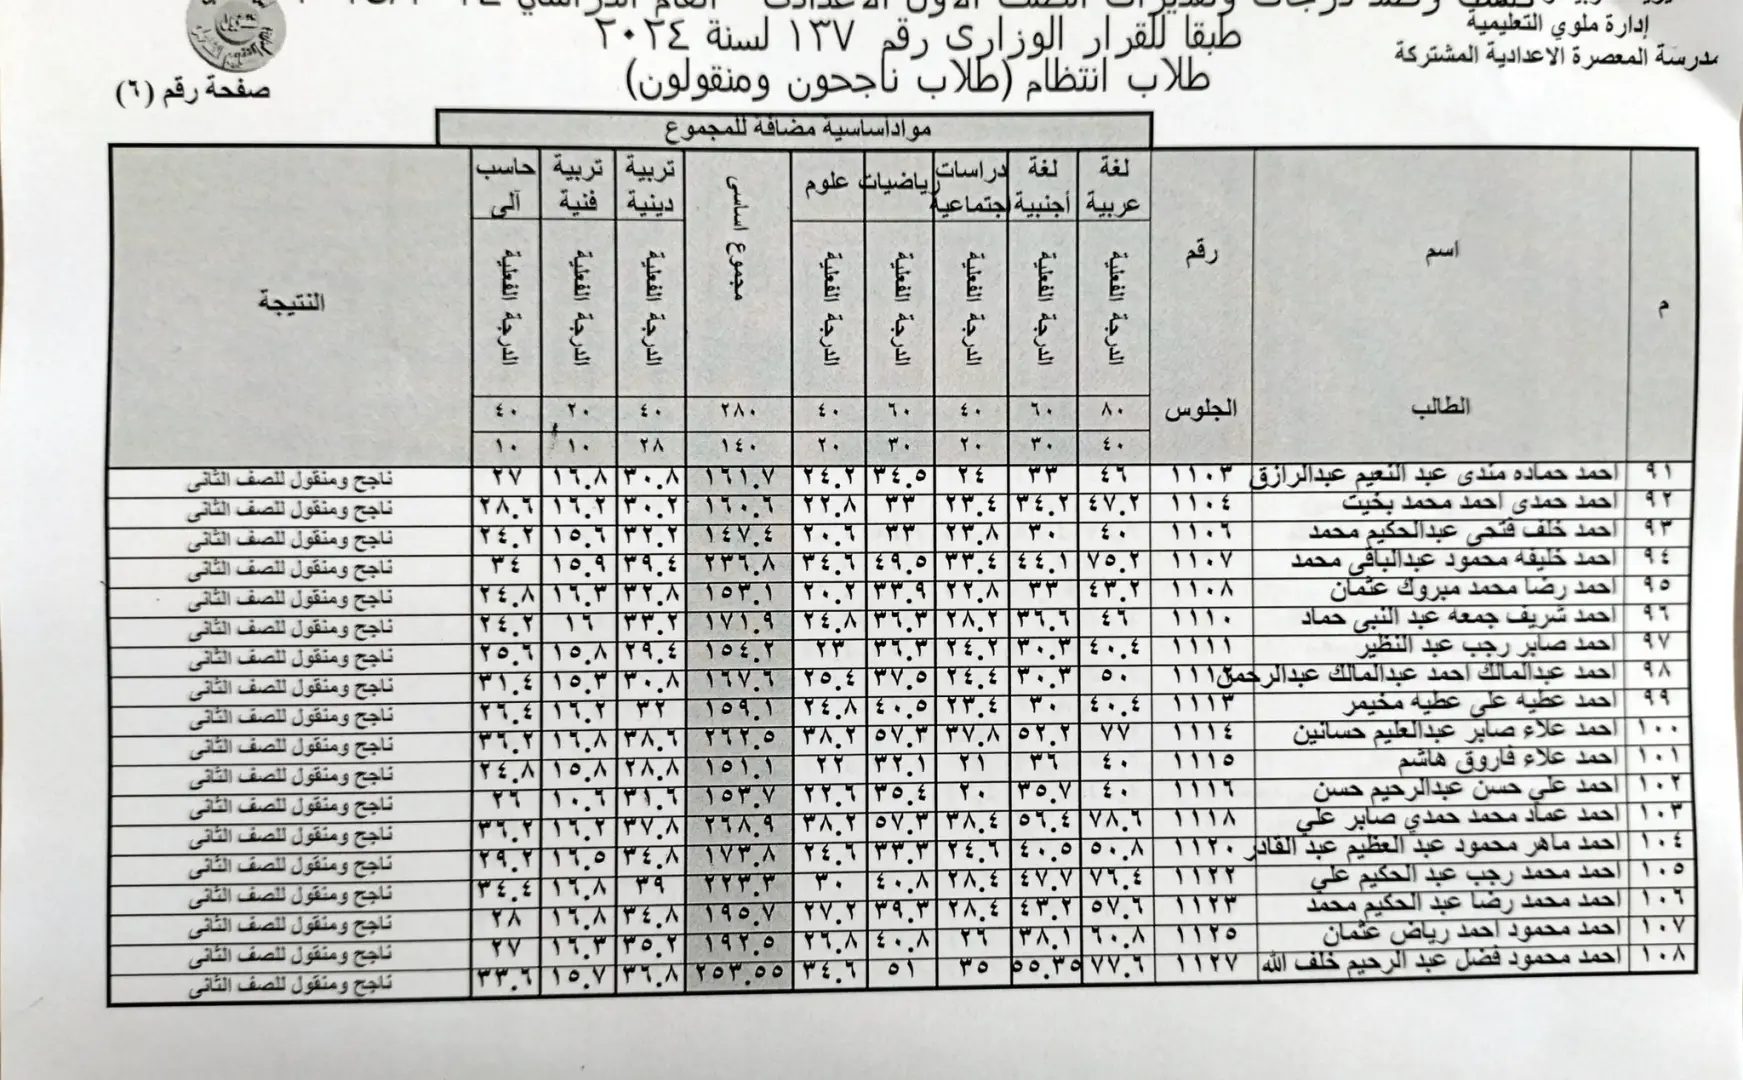 إدارة ملوي التعليمية
مدرسة المعصرة الاعدادية المشتركة
طبقا للقرار الوزارى رقم ١٣٧ لسنة ٢٠٢٤
طلاب انتظام (طلاب ناجحون ومنقولون)
صفحة رقم (٦)
مواداساسية مضافة للمجموع
م اسم الطالب رقم الجلوس لغة عربية لغة أجنبية دراسات اجتماعية رياضيات علوم مجموع اساسى تربية دينية تربية فنية حاسب آلى النتيجة
الدرجة الفعلية الدرجة الفعلية الدرجة الفعلية الدرجة الفعلية الدرجة الفعلية الدرجة الفعلية الدرجة الفعلية الدرجة الفعلية
٨٠ ٦٠ ٤٠ ٦٠ ٤٠ ٢٨٠ ٤٠ ٢٠ ٤٠
٤٠ ٣٠ ٢٠ ٣٠ ٢٠ ١٤٠ ٢٨ ١٠ ١٠
٩١ احمد حماده مندى عبد النعيم عبدالرازق ١١٠٣ ٤٦ ٣٣ ٢٤ ٣٤.٥ ٢٤.٢ ١٦١.٧ ٣٠.٨ ١٦.٨ ٢٧ ناجح ومنقول للصف الثانى
٩٢ احمد حمدى احمد محمد بخيت ١١٠٤ ٤٧.٢ ٣٤.٢ ٢٣.٤ ٣٣ ٢٢.٨ ١٦٠.٦ ٣٠.٢ ١٦.٢ ٢٨.٦ ناجح ومنقول للصف الثانى
٩٣ احمد خلف فتحى عبدالحكيم محمد ١١٠٦ ٤٠ ٣٠ ٢٣.٨ ٣٣ ٢٠.٦ ١٤٧.٤ ٣٢.٢ ١٥.٦ ٢٤.٢ ناجح ومنقول للصف الثانى
٩٤ احمد خليفه محمود عبدالباقى محمد ١١٠٧ ٧٥.٢ ٤٤.١ ٣٣.٤ ٤٩.٥ ٣٤.٦ ٢٣٦.٨ ٣٩.٤ ١٥.٩ ٣٤ ناجح ومنقول للصف الثانى
٩٥ احمد رضا محمد مبروك عثمان ١١٠٨ ٤٣.٢ ٣٣ ٢٢.٨ ٣٣.٩ ٢٠.٢ ١٥٣.١ ٣٢.٨ ١٦.٣ ٢٤.٨ ناجح ومنقول للصف الثانى
٩٦ احمد شريف جمعه عبد النبى حماد ١١١٠ ٤٦ ٣٦.٦ ٢٨.٢ ٣٦.٣ ٢٤.٨ ١٧١.٩ ٣٣.٢ ١٦ ٢٤.٢ ناجح ومنقول للصف الثانى
٩٧ احمد صابر رجب عبد النظير ١١١١ ٤٠.٤ ٣٠.٣ ٢٤.٢ ٣٦.٣ ٢٣ ١٥٤.٢ ٢٩.٤ ١٥.٨ ٢٥.٦ ناجح ومنقول للصف الثانى
٩٨ احمد عبدالمالك احمد عبدالمالك عبدالرحمن ١١١٢ ٥٠ ٣٠.٣ ٢٤.٤ ٣٧.٥ ٢٥.٤ ١٦٧.٦ ٣٠.٨ ١٥.٣ ٣١.٤ ناجح ومنقول للصف الثانى
٩٩ احمد عطيه على عطيه مخيمر ١١١٣ ٤٠.٤ ٣٠ ٢٣.٤ ٤٠.٥ ٢٤.٨ ١٥٩.١ ٣٢ ١٦.٢ ٢٦.٤ ناجح ومنقول للصف الثانى
١٠٠ احمد علاء صابر عبدالعليم حسانين ١١١٤ ٧٧ ٥٢.٢ ٣٧.٨ ٥٧.٣ ٣٨.٢ ٢٦٢.٥ ٣٨.٦ ١٦.٨ ٣٦.٢ ناجح ومنقول للصف الثانى
١٠١ احمد علاء فاروق هاشم ١١١٥ ٤٠ ٣٦ ٢١ ٣٢.١ ٢٢ ١٥١.١ ٢٨.٨ ١٥.٨ ٢٤.٨ ناجح ومنقول للصف الثانى
١٠٢ احمد علي حسن عبدالرحيم حسن ١١١٦ ٤٠ ٣٥.٧ ٢٠ ٣٥.٤ ٢٢.٦ ١٥٣.٧ ٣١.٦ ١٠.٦ ٢٦ ناجح ومنقول للصف الثانى
١٠٣ احمد عماد محمد حمدي صابر علي ١١١٨ ٧٨.٦ ٥٦.٤ ٣٨.٤ ٥٧.٣ ٣٨.٢ ٢٦٨.٩ ٣٧.٨ ١٦.٢ ٣٦.٢ ناجح ومنقول للصف الثانى
١٠٤ احمد ماهر محمود عبد العظيم عبد القادر ١١٢٠ ٥٠.٨ ٤٠.٥ ٢٤.٦ ٣٣.٣ ٢٤.٦ ١٧٣.٨ ٣٤.٨ ١٦.٥ ٢٩.٢ ناجح ومنقول للصف الثانى
١٠٥ احمد محمد رجب عبد الحكيم علي ١١٢٢ ٧٦.٤ ٤٧.٧ ٢٨.٤ ٤٠.٨ ٣٠ ٢٢٣.٣ ٣٩ ١٦.٨ ٣٤.٤ ناجح ومنقول للصف الثانى
١٠٦ احمد محمد رضا عبد الحكيم محمد ١١٢٣ ٥٧.٦ ٤٣.٢ ٢٨.٤ ٣٩.٣ ٢٧.٢ ١٩٥.٧ ٣٤.٨ ١٦.٨ ٢٨ ناجح ومنقول للصف الثانى
١٠٧ احمد محمود احمد رياض عثمان ١١٢٥ ٦٠.٨ ٣٨.١ ٢٦ ٤٠.٨ ٢٦.٨ ١٩٢.٥ ٣٥.٢ ١٦.٣ ٢٧ ناجح ومنقول للصف الثانى
١٠٨ احمد محمود فضل عبد الرحيم خلف الله ١١٢٧ ٧٧.٦ ٥٥.٣٥ ٣٥ ٥١ ٣٤.٦ ٢٥٣.٥٥ ٣٦.٨ ١٥.٧ ٣٣.٦ ناجح ومنقول للصف الثانى